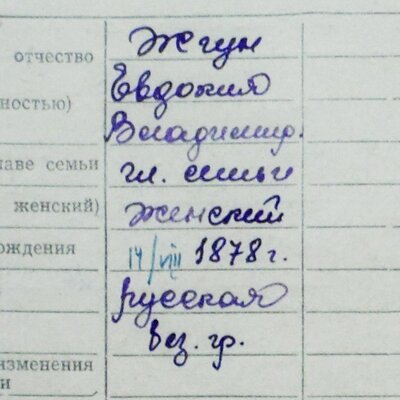 Жгун
отчество Евдокия
ностью) Владимир.
лаве семьи гл. семьи
женский) женский
ождения 14/VIII 1878 г.
русская
без. гр.
изменения
и